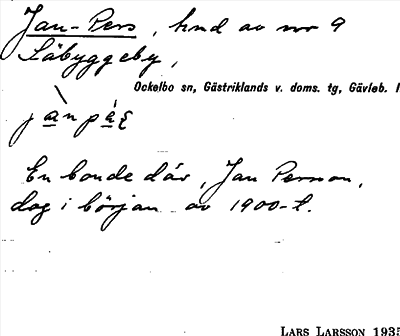 Jan-Pers, hmd av nr 9
Säbyggeby,
Ockelbo sn, Gästriklands v. doms. tg, Gävleb. l
En bonde där, Jan Persson,
dog i början av 1900-t.
LARS LARSSON 1935